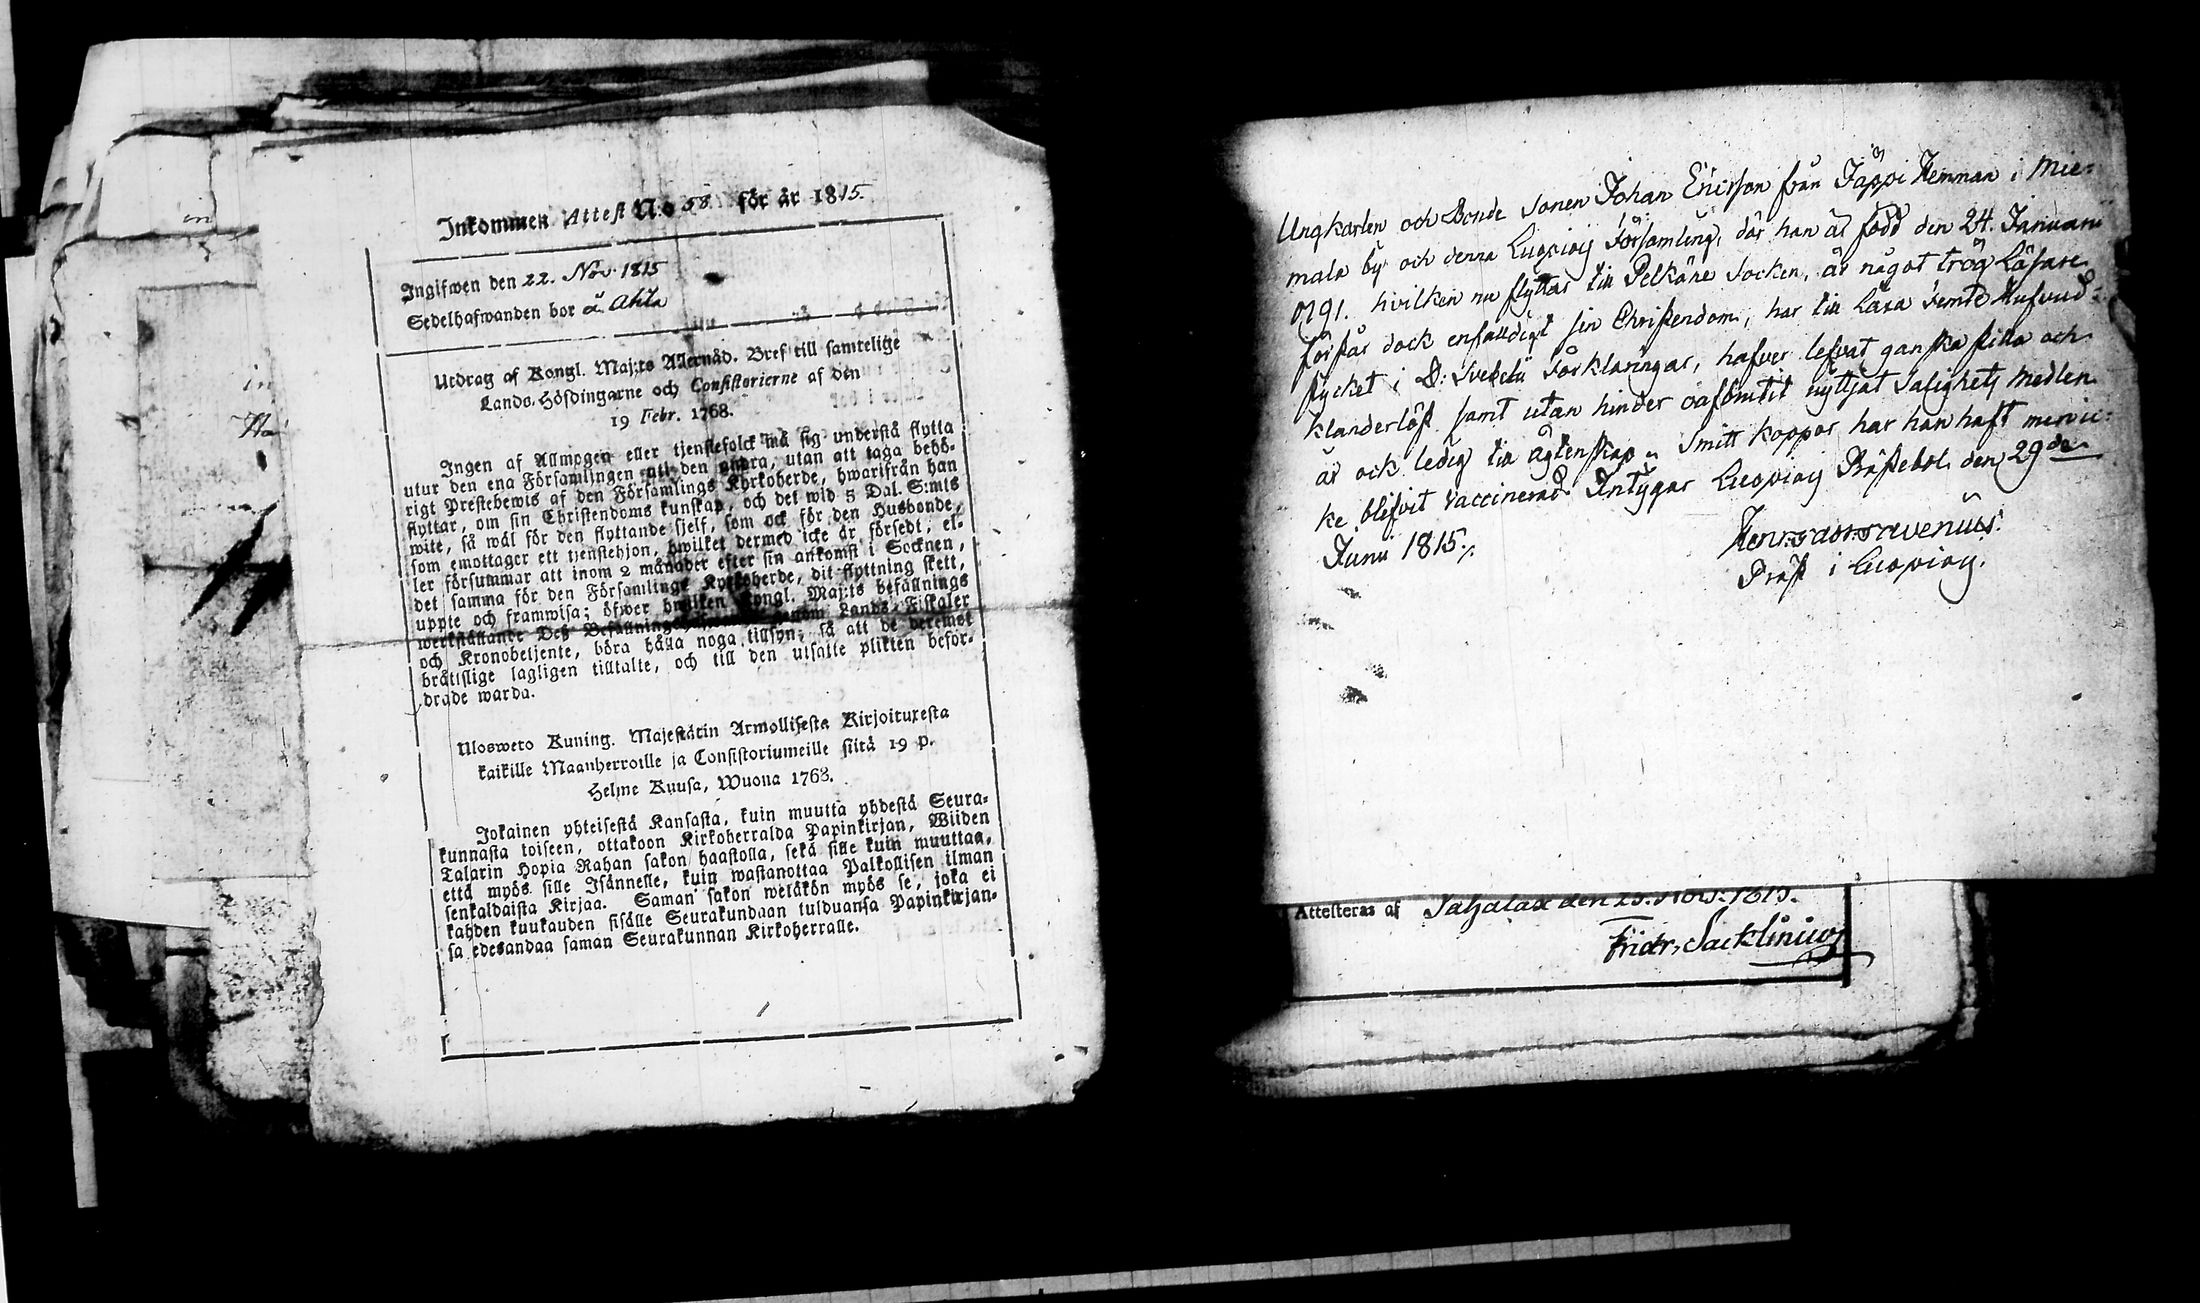 Inkommen Attest N:o 58 för år 1815.
Ingifwen den 22. Nov. 1815
Sedelhafwanden bor å Ahla
Utdrag af Kongl. Maj:ts Allernåd. Bref till samtelige
Lands-Höfdingarne och Consistorierne af den
19 Febr. 1768.
Ingen af Allmogen eller tjenstefolck må sig understå flytta
utur den ena Församlingen till den andra, utan att taga behö-
rigt Prestebewis af den Församlings Kyrkoherde, hwarifrån han
flyttar, om sin Christendoms kunskap, och det wid 5 Dal. S:mts
wite, så wäl för den flyttande sjelf, som ock för den Husbonde,
som emottager ett tjenstehjon, hwilket dermed icke är försedt, el-
ler försummar att inom 2 månader efter sin ankomst i Socknen,
det samma för den Församlings Kyrkoherde, dit flyttning skett,
uppte och framwisa; öfwer hwilken Kongl. Maj:ts befallnings
werkställande Deß Befallningshafwande genom Lands-Fiskaler
och Kronobetjente, böra hålla noga tillsyn, så att de deremot
bråttslige lagligen tilltalte, och till den utsatte plikten befor-
drade warda.
Uloswето Kuning. Majestätin Armollisesta Kirjoituxesta
kaikille Maanherroille ja Consistoriumeille siitä 19 p.
Helme Kuusa, Wuona 1768.
Jokainen yhteisestä Kansasta, kuin muutta yhdestä Seura-
kunnasta toiseen, ottakoon Kirkoherralda Papinkirjan, Wiiden
Talarin Hopia Rahan sakon haastolla, sekä sille kuin muuttaa,
että myös sille Isännelle, kuin wastanottaa Palkollisen ilman
senkaldaista Kirjaa. Saman sakon wetäkön myös se, joka ei
kahden kuukauden sisälle Seurakundaan tulduansa Papinkirjan-
sa edesandaa saman Seurakunnan Kirkoherralle.
Ungkarlen och Bonde Sonen Johan Ericsson från Jäppi Hemman i Mie-
mala by och denna Luopiois Församling, där han är född den 24. Januari
1791. hvilken nu flyttar till Pelkäne Socken, är något trög Läsare
förstår dock enfalldigt sin Christendom, har till Lära Femte Hufvud-
stycket i D: Svebelii Förklaringar, hafver lefvat ganska stilla och
klanderlöst samt utan hinder oafbrutit nyttjat Salighets Medlen
är ock ledig till ägtenskap. Smitt koppor har han haft men ic-
ke blifvit vaccinerad. Intygar Luopiois Prästebol den 29de
Junii 1815.
Präst i Luopiois.
Attesteras af Sahalax den 25. Nov. 1815.
Fridr. Sacklinius